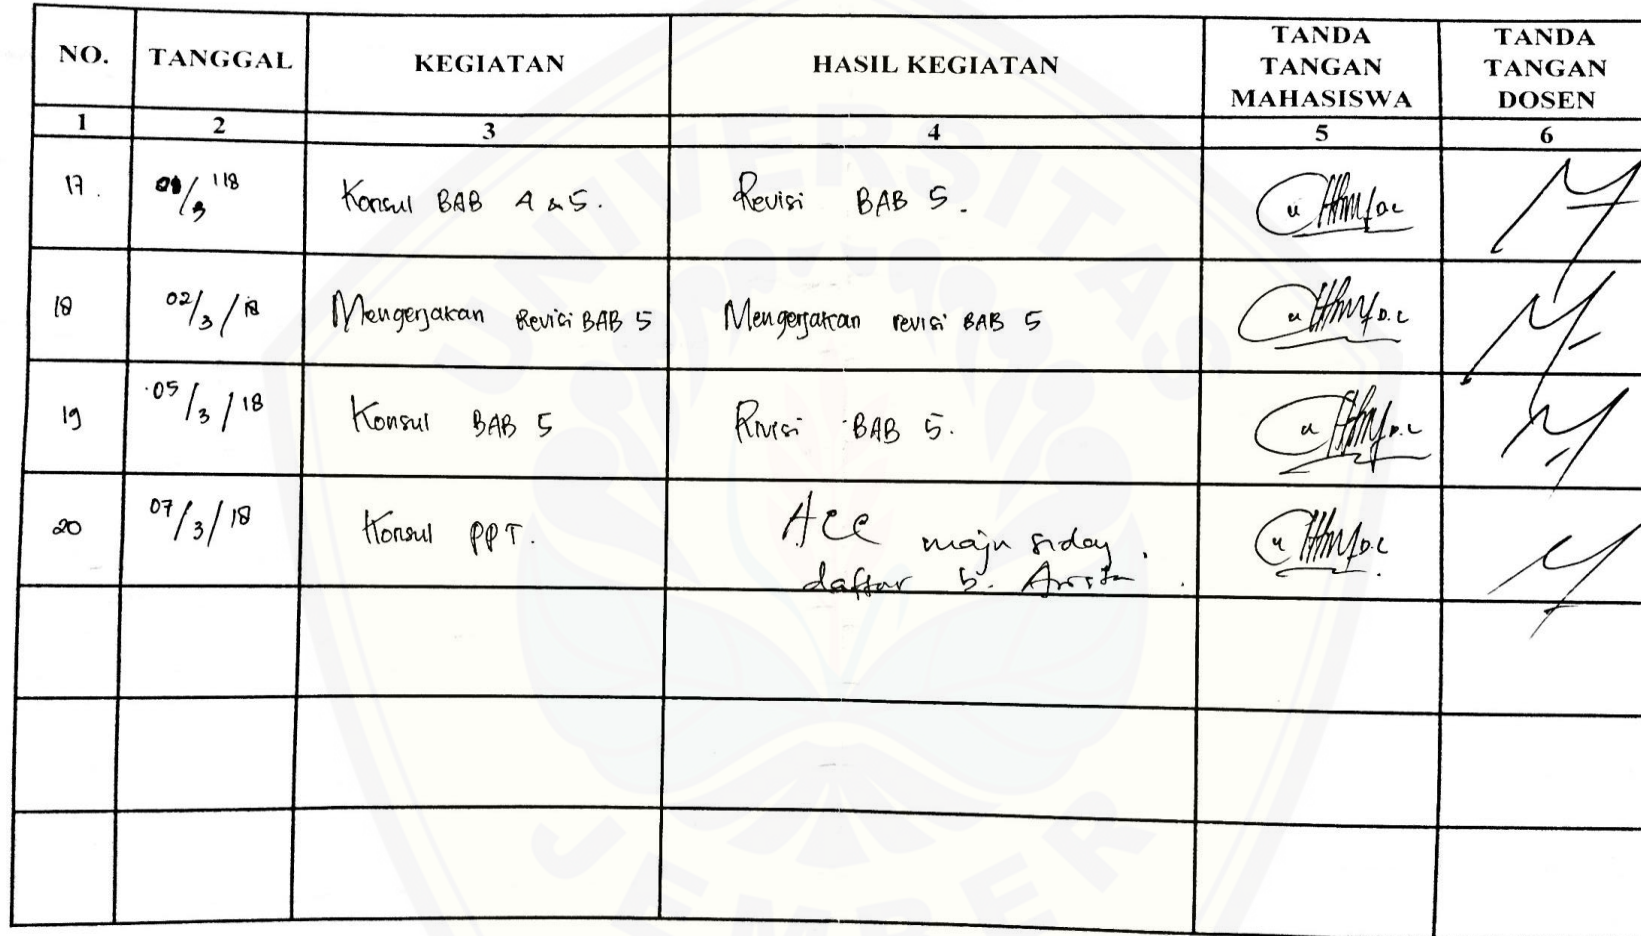 NO. TANGGAL KEGIATAN HASIL KEGIATAN TANDA TANGAN MAHASISWA TANDA TANGAN DOSEN
1 2 3 4 5 6
17. 01/3 '18 Konsul BAB 4 & 5. Revisi BAB 5.
18 02/3/18 Mengerjakan Revisi BAB 5 Mengerjakan revisi BAB 5
19 05/3/18 Konsul BAB 5 Rivisi BAB 5.
20 07/3/18 Konsul PPT. Acc maju sidang.
daftar b. Arista.
UNIVERSITAS
JEMBER